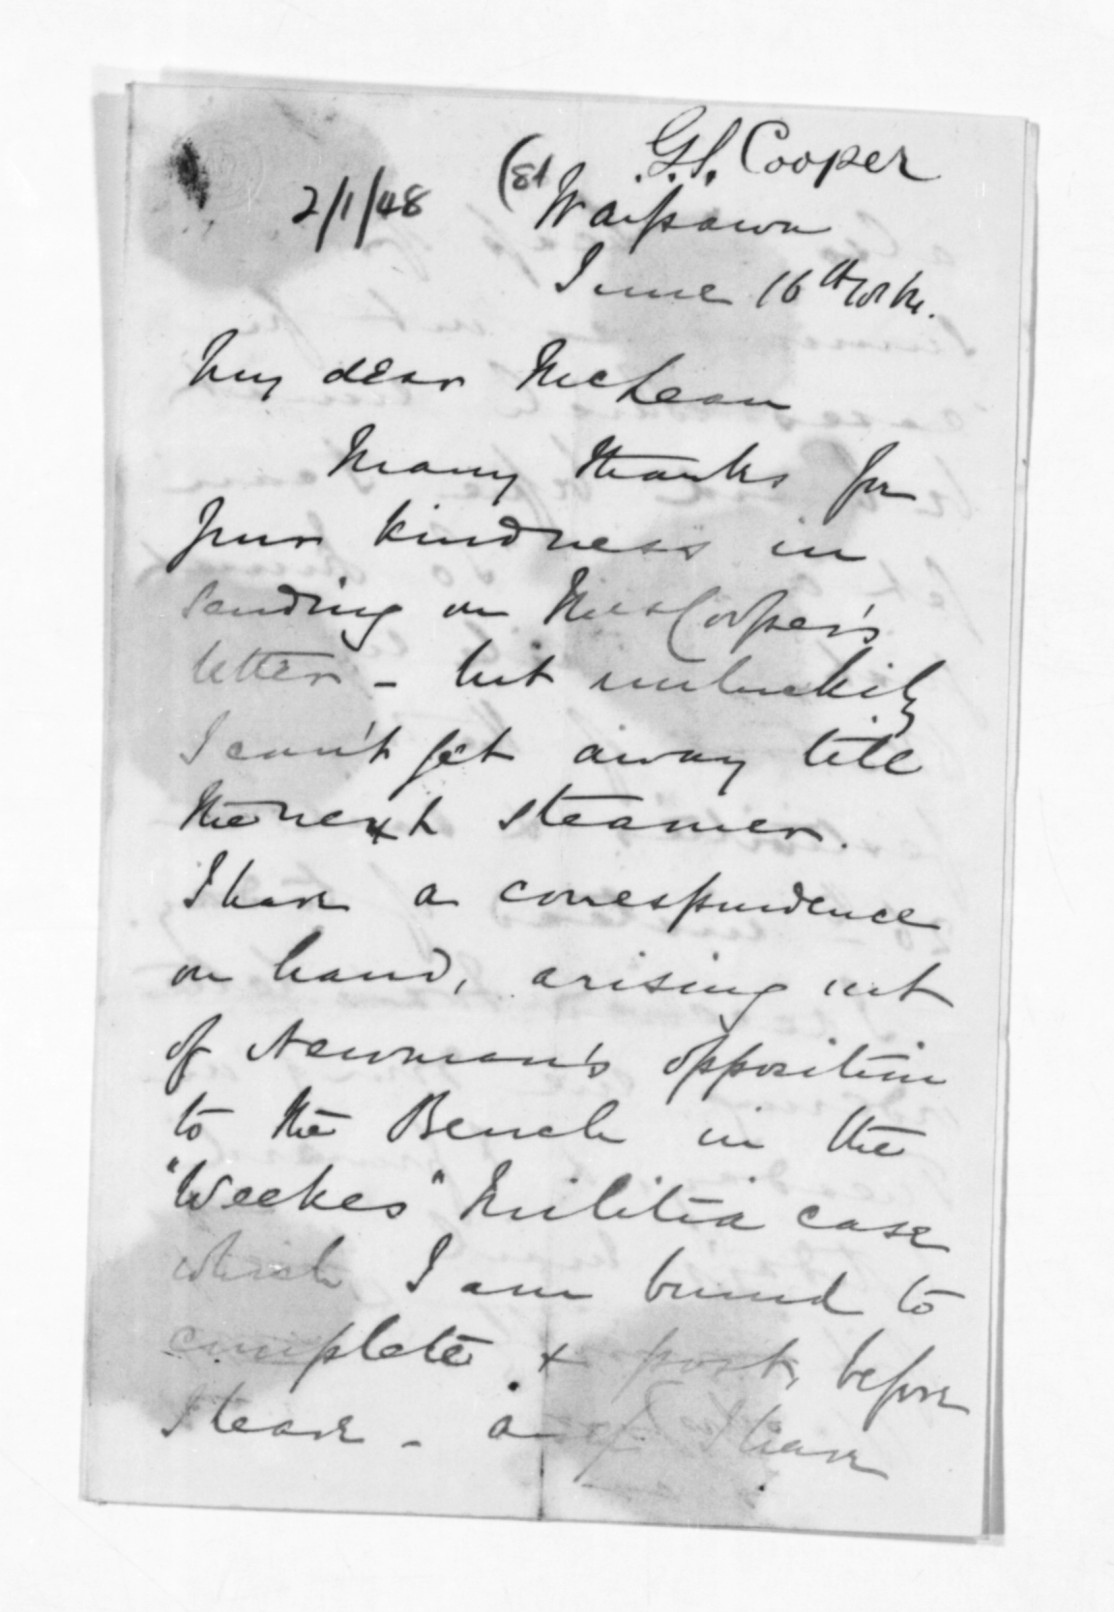 G.S. Cooper
2/1/48 (81
Waipawa
June 16th
My dear McLean
Many thanks for
your kindness in
sending on Mrs Cooper's
letter - but unluckily
I can't get away till
the next steamer.
I have a correspondence
on hand, arising out
of Newman's opposition
to the Bench in the
"Weekes" Militia case
which I am bound to
complete & post, before
I leave - a I have